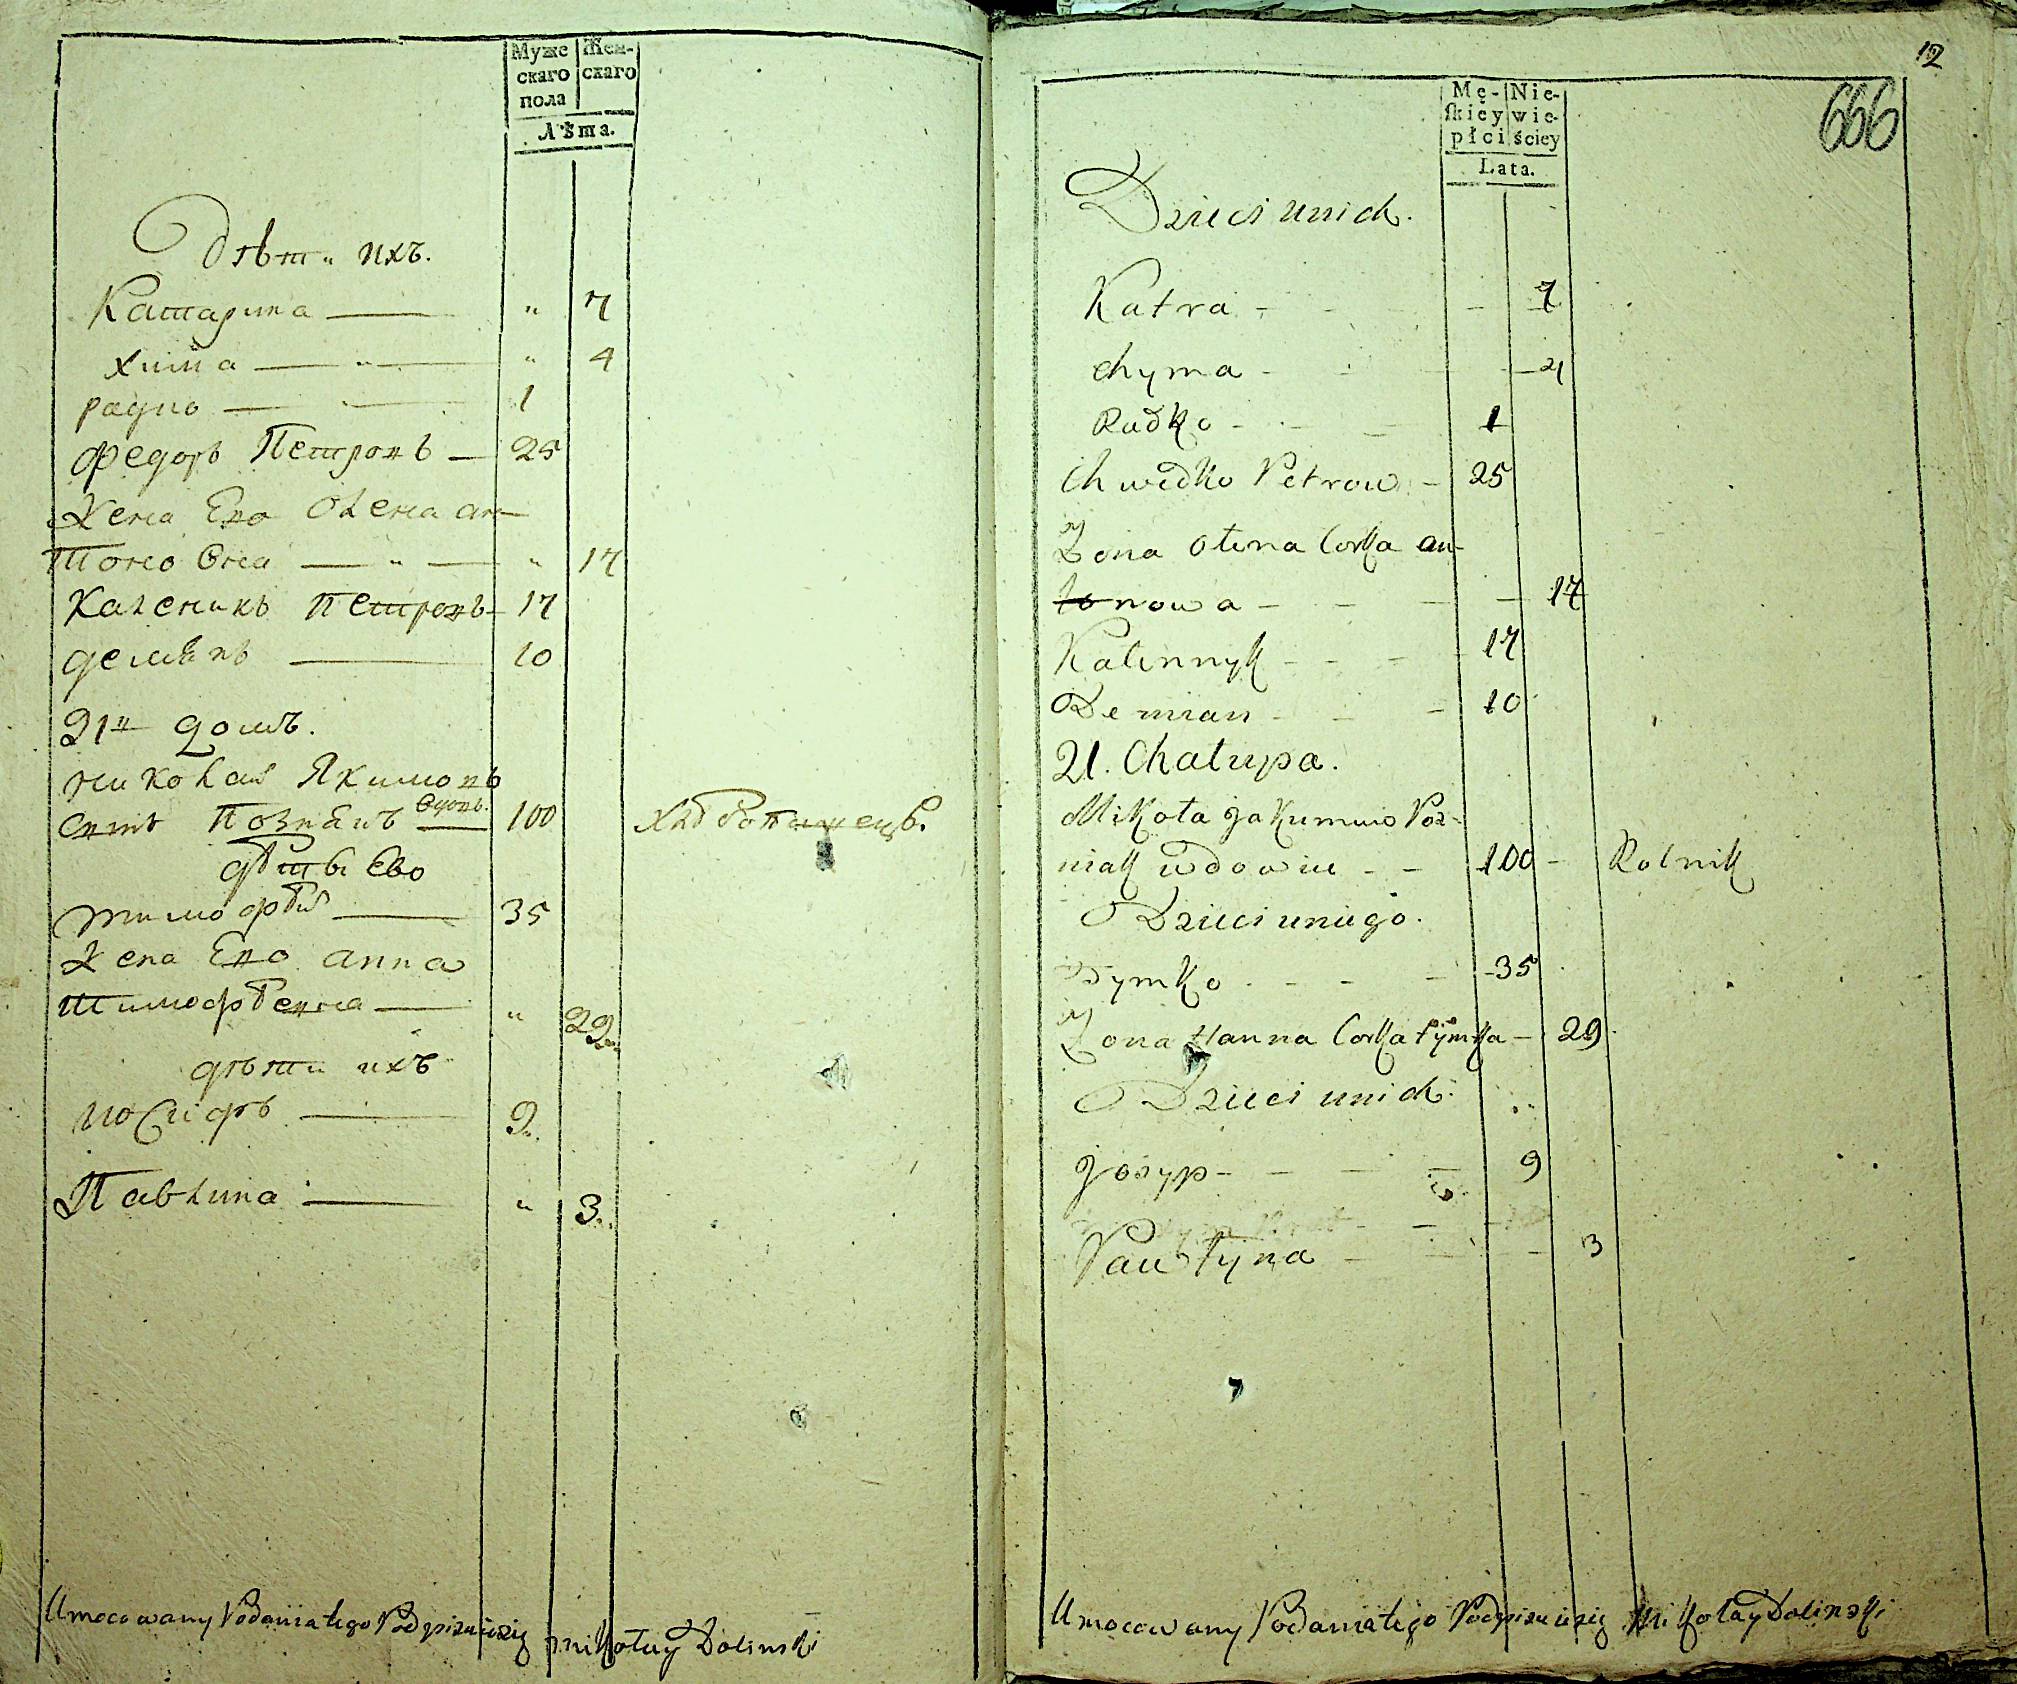 Муже
скаго
пола
Жен-
скаго
Лѣта.
Дѣти ихъ.
Катарина — " 7
Хима — " — " 4
радко — 1
Федоръ Петровъ — 25
Жена Ево Олена ан-
тоновна — " — " 17
Каленикъ Петровъ — 17
демянъ — 10
21й домъ.
николай Якимовъ
снтъ Познякъ вдовъ. — 100 хлѣбопашецъ.
дѣти Ево
тимофѣй — 35
жена Ево анна
тимофѣевна — " 29
дѣти ихъ
иосифъ — 9
Павлина — " 3
Umocowany Podania tego Podpisuię się Mikołay Dolinski
12
666
Mę-
skiey
płci
Nie-
wie-
ściey
Lata.
Dzieci u nich.
Katra - - - - 7
Chyma - - - - 4
Radko - - - 1
Chwedko Petrow - 25
Żona Olena Corka an-
tonowa - - - - 17
Kalinnyk - - - 17
Demian - - - 10
21. Chałupa.
Mikoła Jakumuw Poz-
niak wdowiec - - 100 - Rolnik
Dzieci u niego.
Tymko - - - - 35
Żona Hanna Corka tymka - 29
Dzieci u nich.
Josyp - - - - 9
Pawłyna - - - 3
Umocowany Podania tego Podpisuię się Mikołay Dolinski